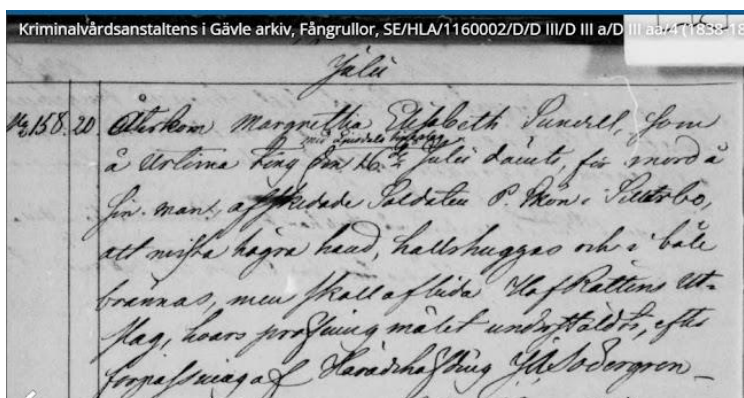 Kriminalvårdsanstaltens i Gävle arkiv, Fångrullor, SE/HLA/1160002/D/D III/D III a/D III aa/4 (1838-18
Julii
N: 158. 20 Återkom Margretha Elisabeth Sunell, som
å Urtima Ting den 16de Julii dömts, för mord å
sin man, afskedade Soldaten P. Mon i
att mista högra hand, halshuggas och i båle
brännas, men skall afbida HofRättens Ut-
slag, hvars pröfning målet underställdes, efter
förpassning af Häradshöfding Södergren